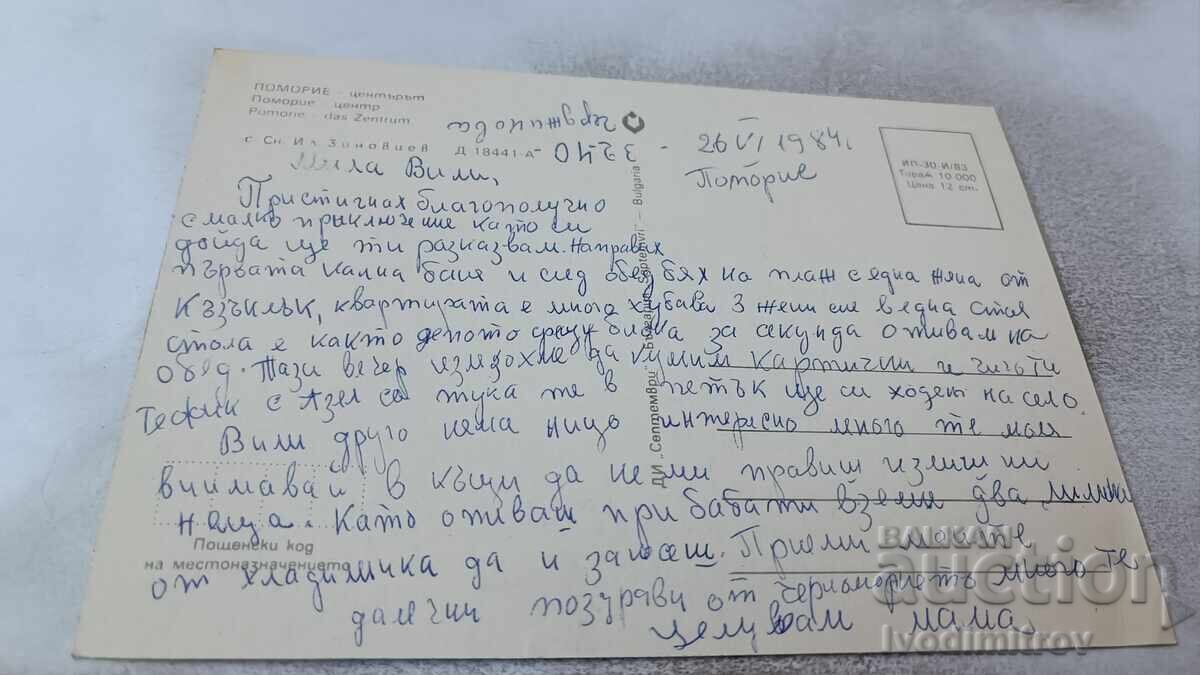 ПОМОРИЕ - центърът
Поморие - центр
Pomorie - das Zentrum
с Сн. Ил. Зиновиев Д 18441-А
3240 -
26 VI 1984г.
Поморие
ИП-30-И/83
Тираж 10 000
Цена 12 ст.
ДИ „Септември" - България „Septemvri" - Bulgaria
Мила Вили,
Пристигнах благополучно
с малко приключение като си
дойда ще ти разказвам. Направих
първата кална баня и след обед бях на плаж с една жена от
Къзъклък, квартирата е много хубава 3 жени сме в една стая
стола е както депото срещу блока за секунда отивам на
обед. Тази вечер излязохме да купим картички и
с са тука те в петък ще си ходят на село.
Вили друго няма нищо интересно много те моля
внимавай в къщи да не ми правиш излишни
неща. Като отиваш при баба ти вземи два
от хладилника да и занесеш. Приеми моите
далечни поздрави от черноморието много те
целувам мама.
Пощенски код
на местоназначението
БАЛКАН
auction
Ivodimitrov